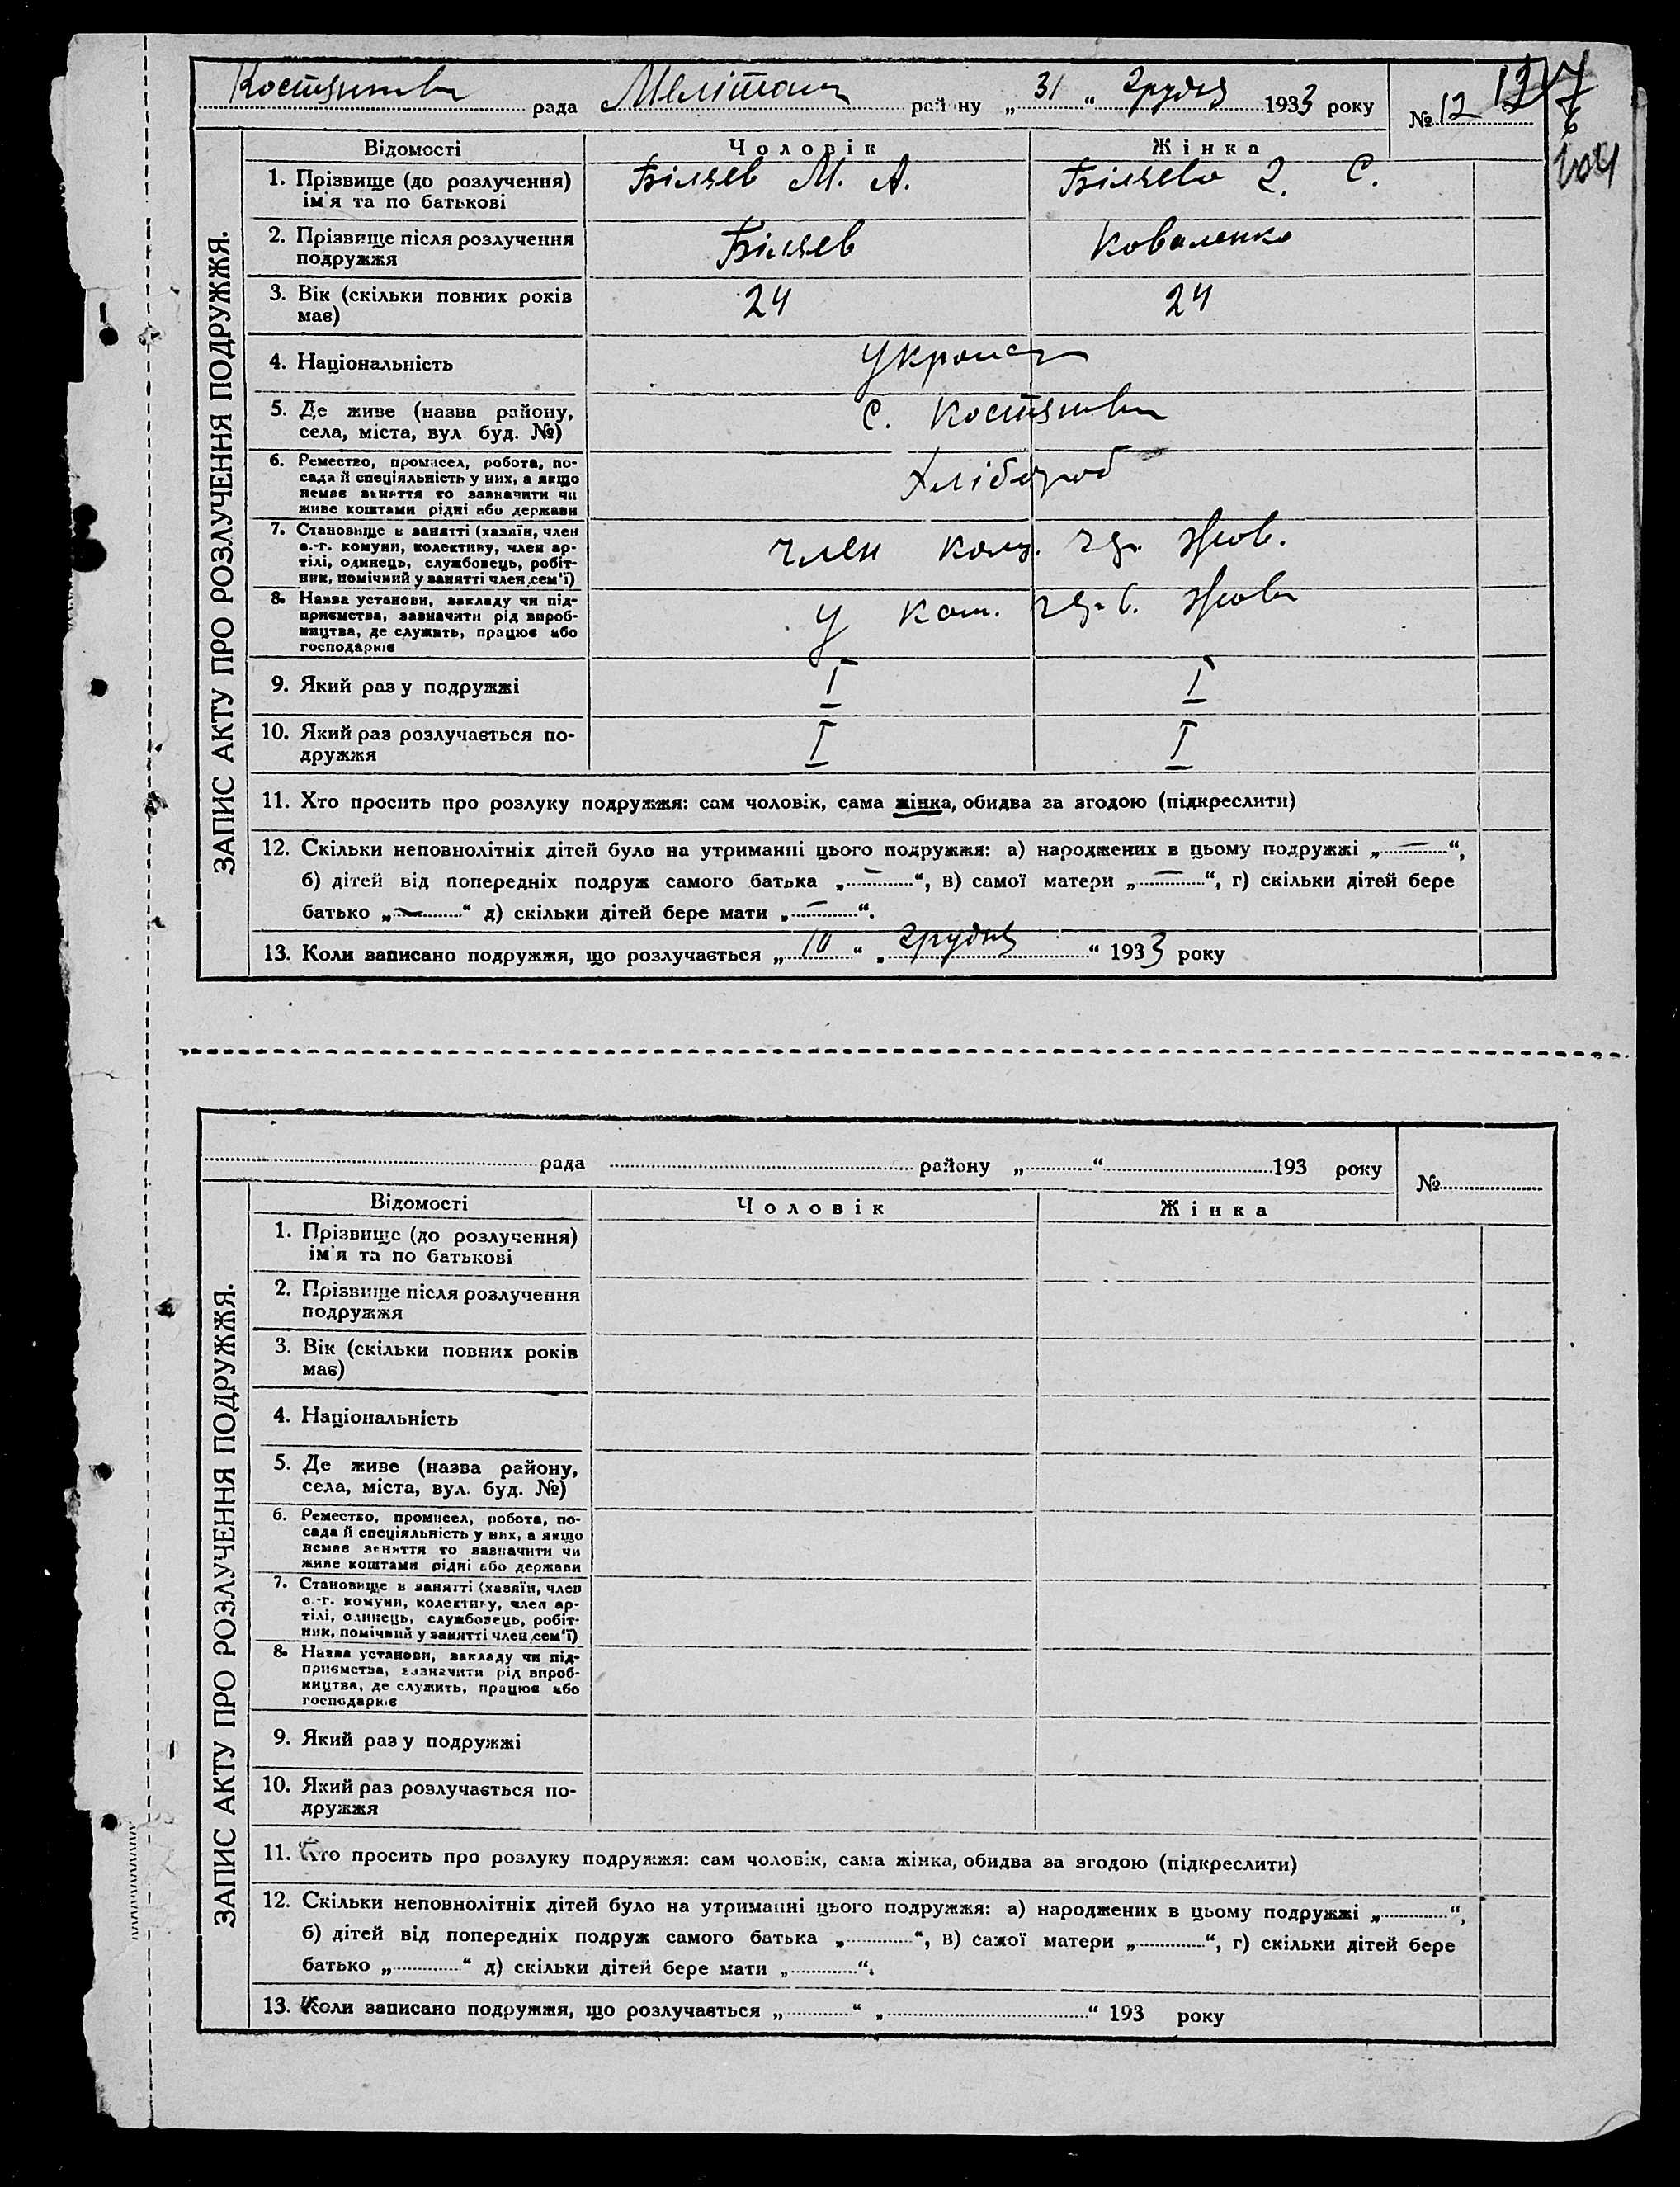 Костянтів рада Мелітоп району „31“ грудня 1933 року
№ 12
ЗАПИС АКТУ ПРО РОЗЛУЧЕННЯ ПОДРУЖЖЯ.
Відомості Чоловік Жінка
1. Прізвище (до розлучення) Біляєв М. А. Біляєва С.
ім'я та по батькові
2. Прізвище після розлучення Біляєв Коваленко
подружжя
3. Вік (скільки повних років 24 24
має)
4. Національність
5. Де живе (назва району, С. Костянтів
села, міста, вул. буд. №)
6. Ремество, промисел, робота, по-
сада й спеціяльність у них, а якщо Хлібороб
немає заняття то зазначити чи
живе коштами рідні або держави
7. Становище в занятті (хазяїн, член
с.-г. комуни, колективу, член ар- член
тілі, одинець, службовець, робіт-
ник, помічний у занятті член сем'ї)
8. Назва установи, закладу чи під- у
приємства, зазначити рід вироб-
ництва, де служить, працює або
господарює
9. Який раз у подружжі I I
10. Який раз розлучається по- I I
дружжя
11. Хто просить про розлуку подружжя: сам чоловік, сама жінка, обидва за згодою (підкреслити)
12. Скільки неповнолітніх дітей було на утриманні цього подружжя: а) народжених в цьому подружжі „—“,
б) дітей від попередніх подруж самого батька „—“, в) самої матери „—“, г) скільки дітей бере
батько „—“ д) скільки дітей бере мати „—“.
13. Коли записано подружжя, що розлучається „10“ „грудня“ 1933 року
рада району „ “ 193 року
№
ЗАПИС АКТУ ПРО РОЗЛУЧЕННЯ ПОДРУЖЖЯ.
Відомості Чоловік Жінка
1. Прізвище (до розлучення)
ім'я та по батькові
2. Прізвище після розлучення
подружжя
3. Вік (скільки повних років
має)
4. Національність
5. Де живе (назва району,
села, міста, вул. буд. №)
6. Ремество, промисел, робота, по-
сада й спеціяльність у них, а якщо
немає заняття то зазначити чи
живе коштами рідні або держави
7. Становище в занятті (хазяїн, член
с.-г. комуни, колективу, член ар-
тілі, одинець, службовець, робіт-
ник, помічний у занятті член сем'ї)
8. Назва установи, закладу чи під-
приємства, зазначити рід вироб-
ництва, де служить, працює або
господарює
9. Який раз у подружжі
10. Який раз розлучається по-
дружжя
11. Хто просить про розлуку подружжя: сам чоловік, сама жінка, обидва за згодою (підкреслити)
12. Скільки неповнолітніх дітей було на утриманні цього подружжя: а) народжених в цьому подружжі „ “,
б) дітей від попередніх подруж самого батька „ “, в) самої матери „ “, г) скільки дітей бере
батько „ “ д) скільки дітей бере мати „ “.
13. Коли записано подружжя, що розлучається „ “ „ “ 193 року